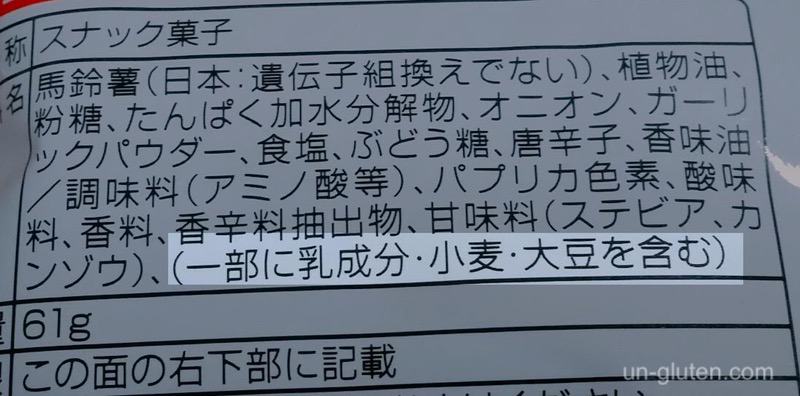 称 スナック菓子
名 馬鈴薯(日本:遺伝子組換えでない)、植物油、
粉糖、たんぱく加水分解物、オニオン、ガーリ
ックパウダー、食塩、ぶどう糖、唐辛子、香味油
／調味料(アミノ酸等)、パプリカ色素、酸味
料、香料、香辛料抽出物、甘味料(ステビア、カ
ンゾウ)、(一部に乳成分・小麦・大豆を含む)
量 61g
この面の右下部に記載
un-gluten.com